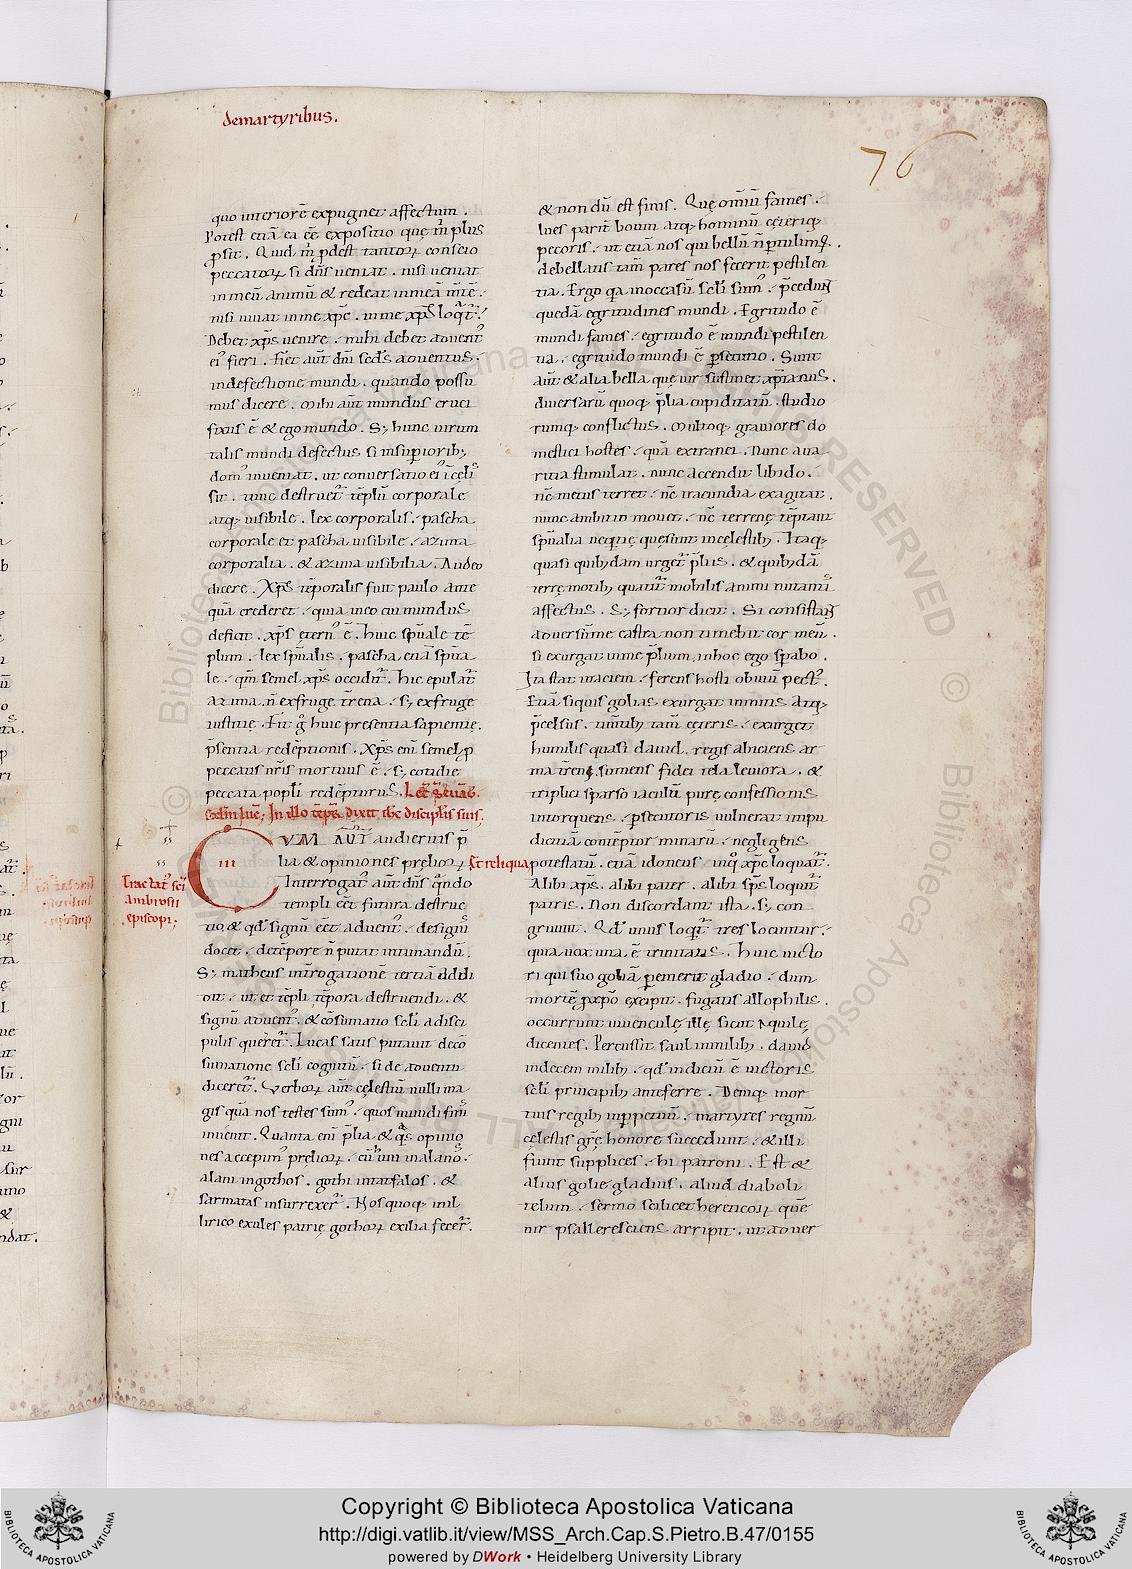 demartyribus.
76
quo interiorē expugnet affectum.
Potest etiā ea eē expositio quę m̄ plus
ꝓsit. Quid m̄ ꝓdest tantoꝝ conscio
peccatoꝝ si dn̄s ueniat. nisi ueniat
in meū animū & redeat in meā mtē.
nisi uiuat in me xp̄c. in me xp̄s loqt̄.
Debet xp̄s uenire. mihi debet aduent
ei fieri. Fiet aūt dn̄i scđs aduentus.
indefectione mundi. quando possu
mus dicere. Mihi aūt mundus cruci
fixus ē & ego mundo. Sꝫ hunc uirum
talis mundi defectus si insuꝑioribꝫ
dom inueniat. ut conuersatio ei ī cęli
sit. tunc destruet̄ tēplū corporale
atqꝫ uisibile. lex corporalis. pascha
corporale et pascha uisibile. azima
corporalia. & azima uisibilia. Audeo
dicere. Xp̄s tēporalis fuit paulo ante
quā crederet. quia in eo cui mundus
deficit. xp̄s ętern ē. Huic spūale tē
plum. lex spūalis. pascha etiā spūa
le. qm̄ semel xp̄s occidit̄. hic epulat̄
azima. n̄ exfruge trēna. sꝫ exfruge
iustitię. Fit g̊ huic presentia sapientię.
p̄sentia redēptionis. Xp̄s eni semel ꝓ
peccatis nr̄is mortuus ē. sꝫ cotidie
peccata popli redēpturus. Lec̄t sc̄i euāḡ.
Scđm luc̄; In illo tēpr̄. dixit ihc discipl̄is suis.
CVM AUT̄ audieritis p̄
lia & opiniones pręlioꝝ Et reliqua
Interrogat̄ aūt dn̄s qndo
templi eēt futura destruc
tio. & qd signū eēt aduent. designū
docet. detēpore n̄ putat intimandū.
Sꝫ matheus int̄rogationē tertiā addi
dit. ut et tēpli tēpora destruendi. &
signū aduent. & cōsumatio scl̄i a disci
pulis querēt̄. Lucas satis putauit deco
sumatione scl̄i cognitū. si de aduentu
diceret̄. Verboꝝ aūt cęlestiū nulli ma
gis quā nos testes sum. quos mundi finis
inuenit. Quanta eni p̄lia & q̄s opinio
nes accepim pręlioꝝ. cū huni in alanos.
alani in gothos. gothi in taifalos. &
sarmatas insurrexer̄. Nos quoqꝫ in il
lirico exules patrię gothoꝝ exilia fecer̄.
Tractat sci
Ambrosii
episcopi;
& non dū est finis. Quę omiū fames.
lues parit̄ boum atqꝫ hominū cęteriqꝫ
pecoris. ut etiā nos qui bellū n̄ ꝑtulimꝰ.
debellatis tam̄ pares nos fecerit pestilen
tia. Ergo qa in occasū scl̄i sum. p̄cedunt
quedā egritudines mundi. Egritudo ē
mundi fames. egritudo ē mundi pestilen
tia. egritudo mundi ē ꝑsecutio. Sunt
aūt & alia bella quę uir sustinet xp̄ianus.
diuersarū quoqꝫ p̄lia cupiditatū. studio
rumqꝫ conflictus. Multoqꝫ grauiores do
mestici hostes. quā extranei. Nunc aua
ritia stimulat. nunc accendit libido.
nc̄ metus terret. nc̄ iracundia exagitat.
nunc ambitio mouet. nc̄ terrenę tēptant
spūalia nequitię quęsunt in cęlestibꝫ. Itaqꝫ
quasi quibꝫdam urget̄ p̄liis. & quibꝫdā
terrę motibꝫ quatit̄ mobilis animi nutanti
affectus. Sꝫ fortior dicit. Si consistant
aduersūme castra non timebit cor meū.
si exurgat in me p̄lium. in hoc ego sperabo.
Ita stat in aciem. ferens hosti obuiū pect.
Etiā siquis golias exurgat inmitis atqꝫ
p̄celsus. timtibꝫ tam̄ cęteris. exurget
humilis quasi dauid. regis abiciens ar
ma trēni. sumens fidei tela leuiora. &
triplici sparso iaculū purę confessionis
intorquens. ꝑsecutoris uulnerat impu
dictiā contēptor minarū. neglegens
potestatū. etiā idoneus in q xp̄c loquat̄.
Alibi xp̄s. alibi pater. alibi sp̄s loquit̄
patris. Non discordant ista. sꝫ con
gruunt. Qd unus loqt̄. tres locuntur.
quia uox una ē trinitatis. Huic uicto
ri qui suo goliā ꝑemerit gladio. dum
mortē ꝓxp̄o excipit. fugatis allophilis.
occurrunt iuuenculę illę sicut Aquilę
dicentes. Percussit saul in milibꝫ. dauid
in decem milibꝫ. qd indiciū ē uictoris
scl̄i principibꝫ anteferre. Deniqꝫ mor
tuis regibꝫ inꝑpetuū. martyres regnū
cęlestis gr̄ę honore succedunt. & illi
fiunt supplices. hi patroni. Est &
alius golię gladius. aliud diaboli
telum. sermo scilicet hereticoꝝ quē
uir psallere sciens arripit. ut aduer
Copyright © Biblioteca Apostolica Vaticana
http://digi.vatlib.it/view/MSS_Arch.Cap.S.Pietro.B.47/0155
powered by DWork • Heidelberg University Library
BIBLIOTECA APOSTOLICA VATICANA
BIBLIOTECA APOSTOLICA VATICANA